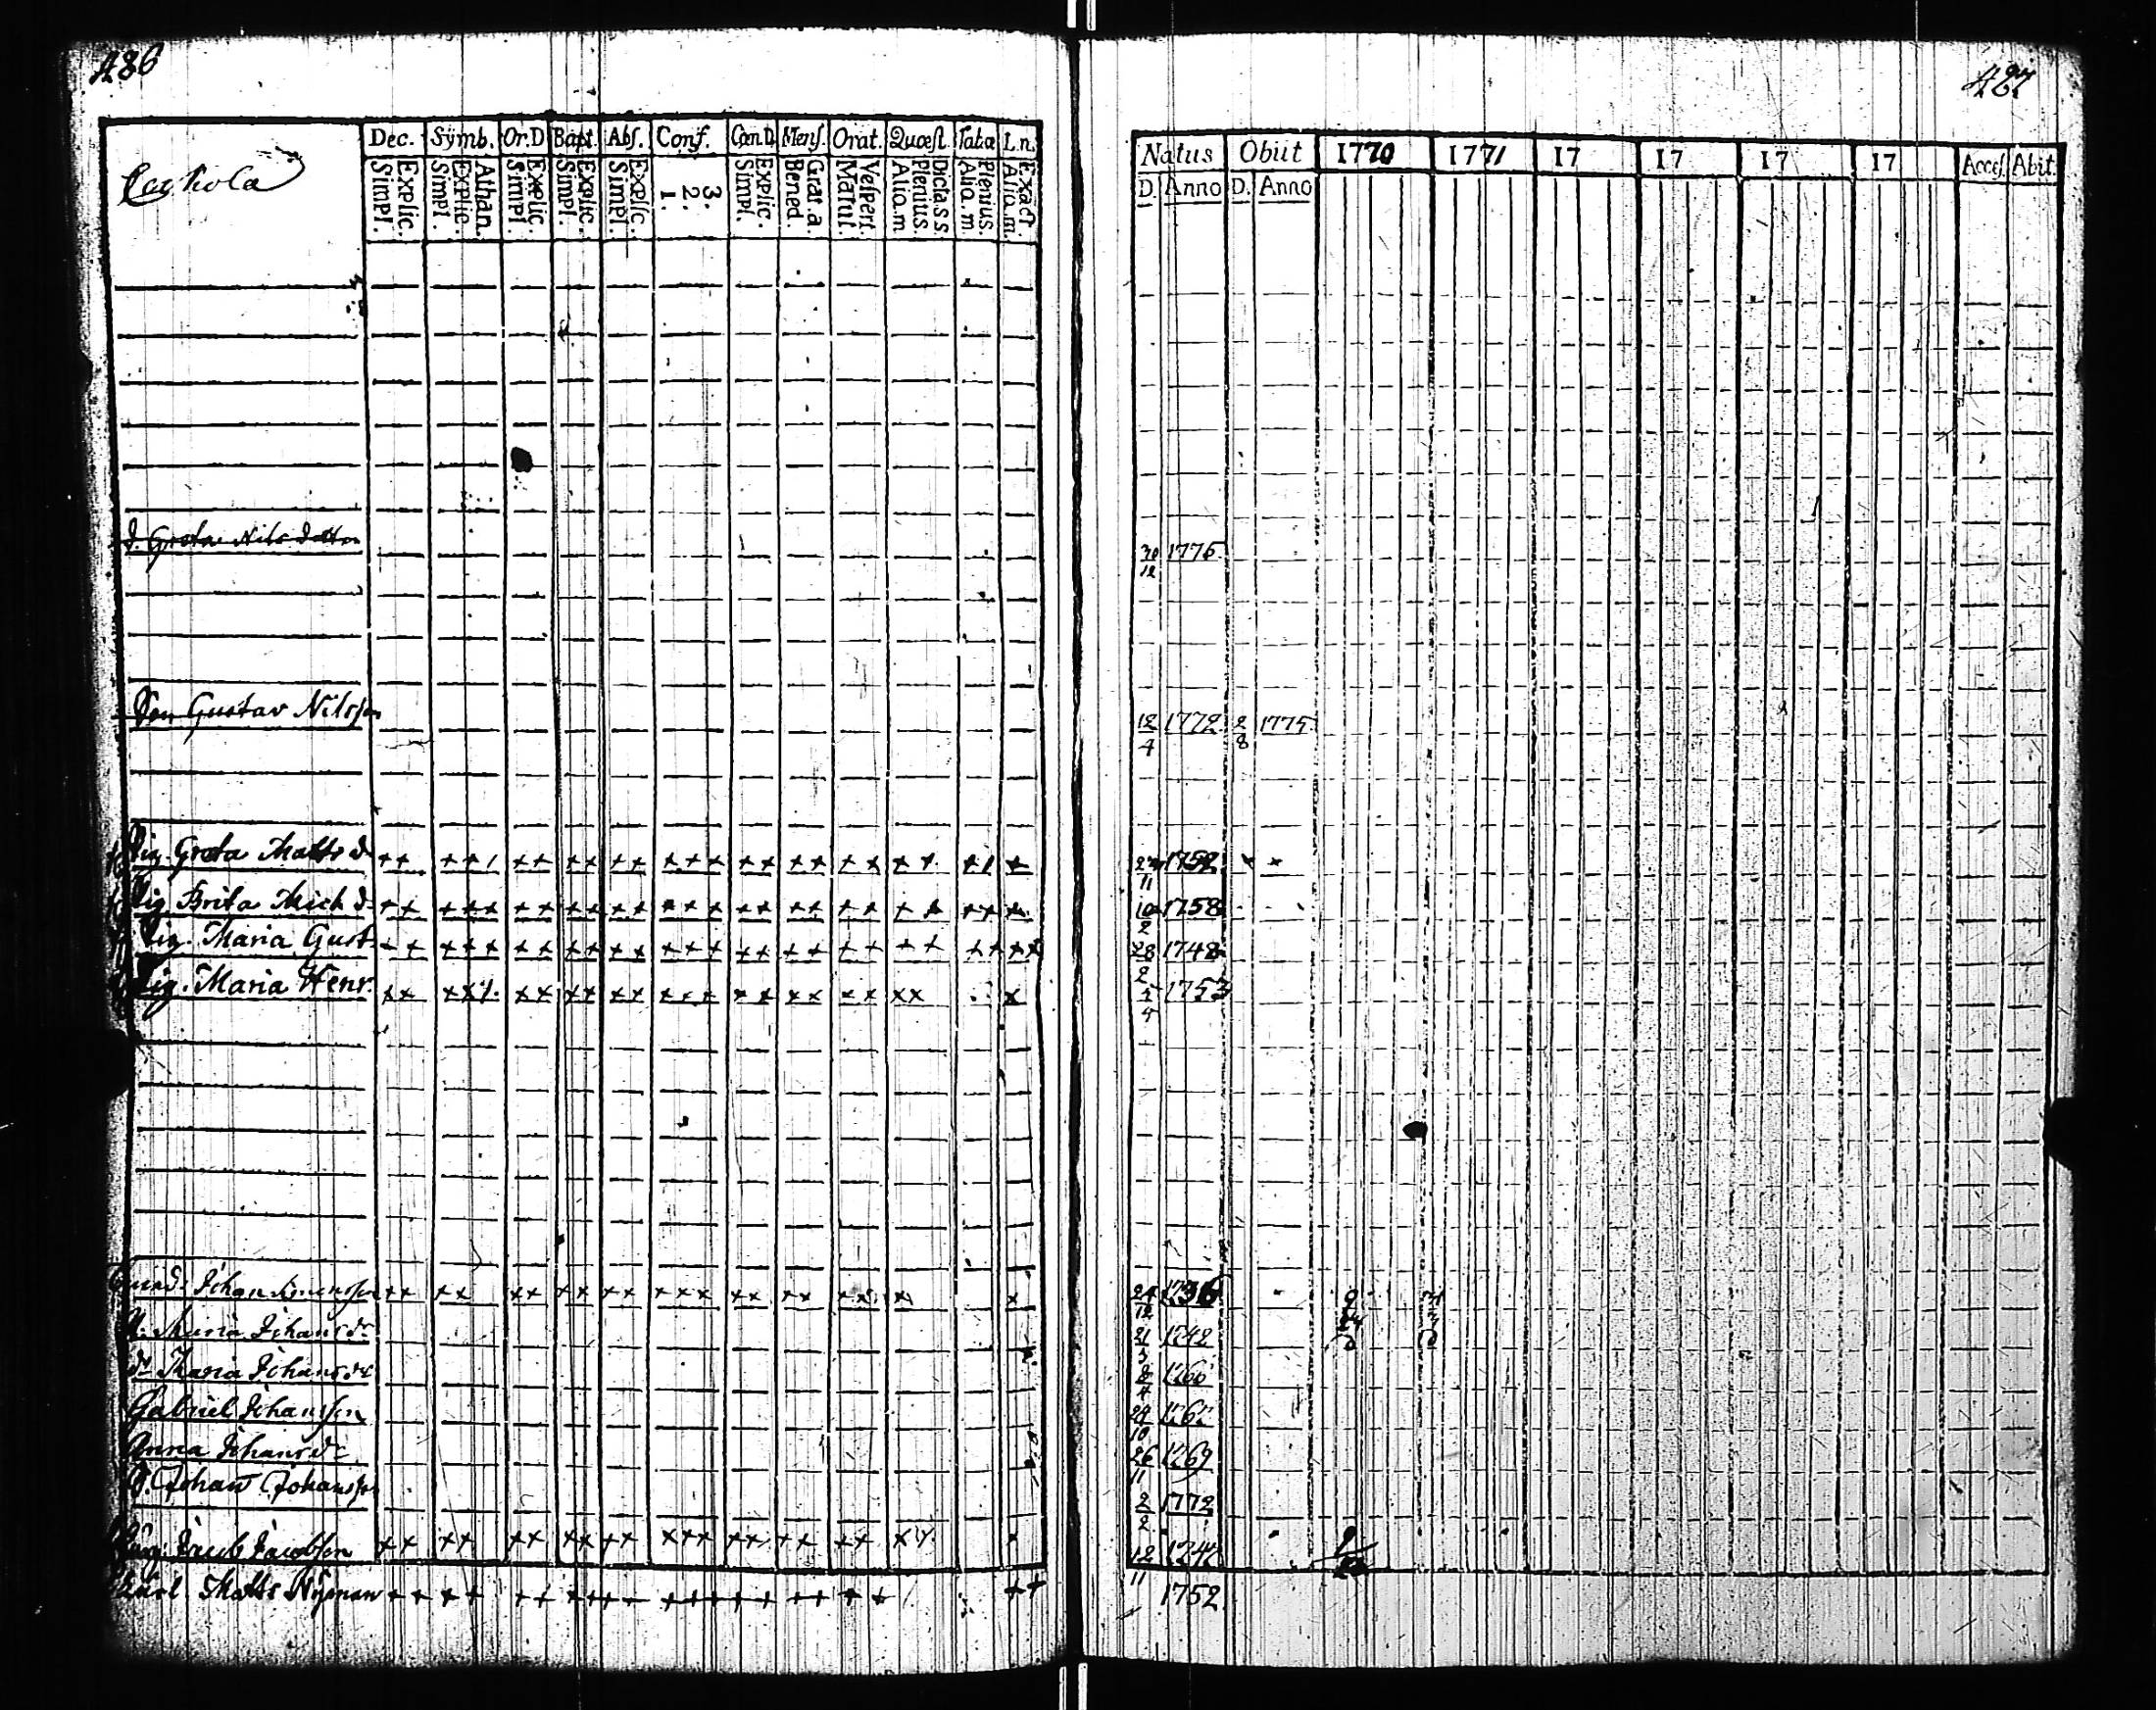 486
427
Dec. Symb. Or.D Bapt. Abs. Conf. Cœn.D Mens. Orat. Quæst. Tab.a L.n.
Simpl. Explic. Simpl. Explic. Athan. Simpl. Explic. Simpl. Explic. Simpl. Explic. 1. 2. 3. Simpl. Explic. Bened. Grat.a. Matut. Vespert. Aliq.m Plenius. Dict.a s.s Aliq.m Plenius. Aliq.m. Exact.
Natus Obiit 1770 1771 17 17 17 17 Acces. Abit.
D. Anno D. Anno
d. Greta Nils dotter 30/12 1776
Son Gustav Nilsson 12/4 1772 2/8 1775
Pig. Greta Matts d. ++ ++/ ++ ++ ++ +++ ++ ++ ++ ++ +/ + 11 1752
Pig. Brita Mich d. ++ +++ ++ ++ ++ +++ ++ ++ ++ ++ ++ + 10/2 1758
Pig. Maria Gust. ++ +++ ++ ++ ++ +++ ++ ++ ++ ++ ++ ++ 28/2 1748
Pig. Maria Henr. ++ ++ ++ ++ ++ +++ ++ ++ ++ ++ + 5/4 1753
Johan ++ ++ ++ ++ ++ +++ ++ ++ ++ + + 24/12 1736
H. Maria Johans dr 21 1742
dr Maria Johans dr 8/4 1766
Gabriel Johansson 24/10 1767
Anna Johans dr 26/11 1769
S. Johan Johansson 2/2 1772
Jacob Jacobsson ++ ++ ++ ++ ++ +++ ++ ++ ++ ++ + 12/11
Karl. Matts Nyman ++ ++ ++ ++ ++ +++ ++ ++ ++ ++ 1752